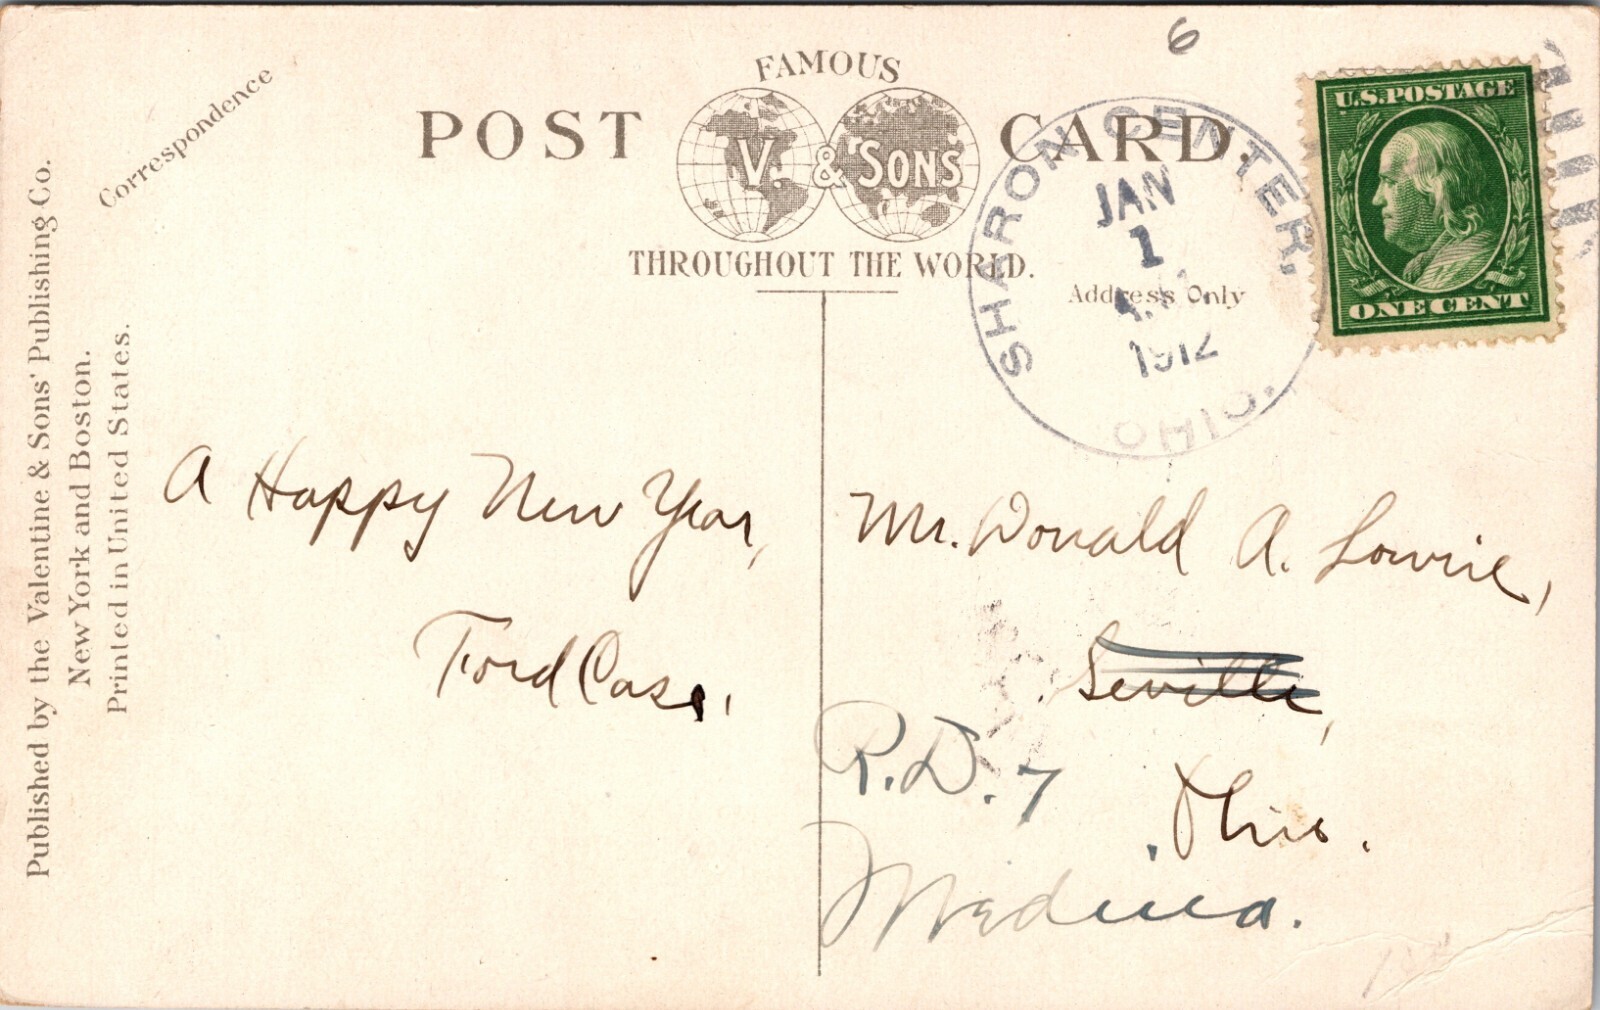 6
FAMOUS
POST CARD.
V. & SONS
THROUGHOUT THE WORLD.
Correspondence
Address Only
U.S. POSTAGE
ONE CENT
SHARON CENTER,
JAN
1
1912
OHIO.
Published by the Valentine & Sons' Publishing Co.
New York and Boston.
Printed in United States.
A Happy New Year,
Ford Case.
Mr. Donald A. Lowrie,
Seville,
R.D. 7
Ohio.
Medina.